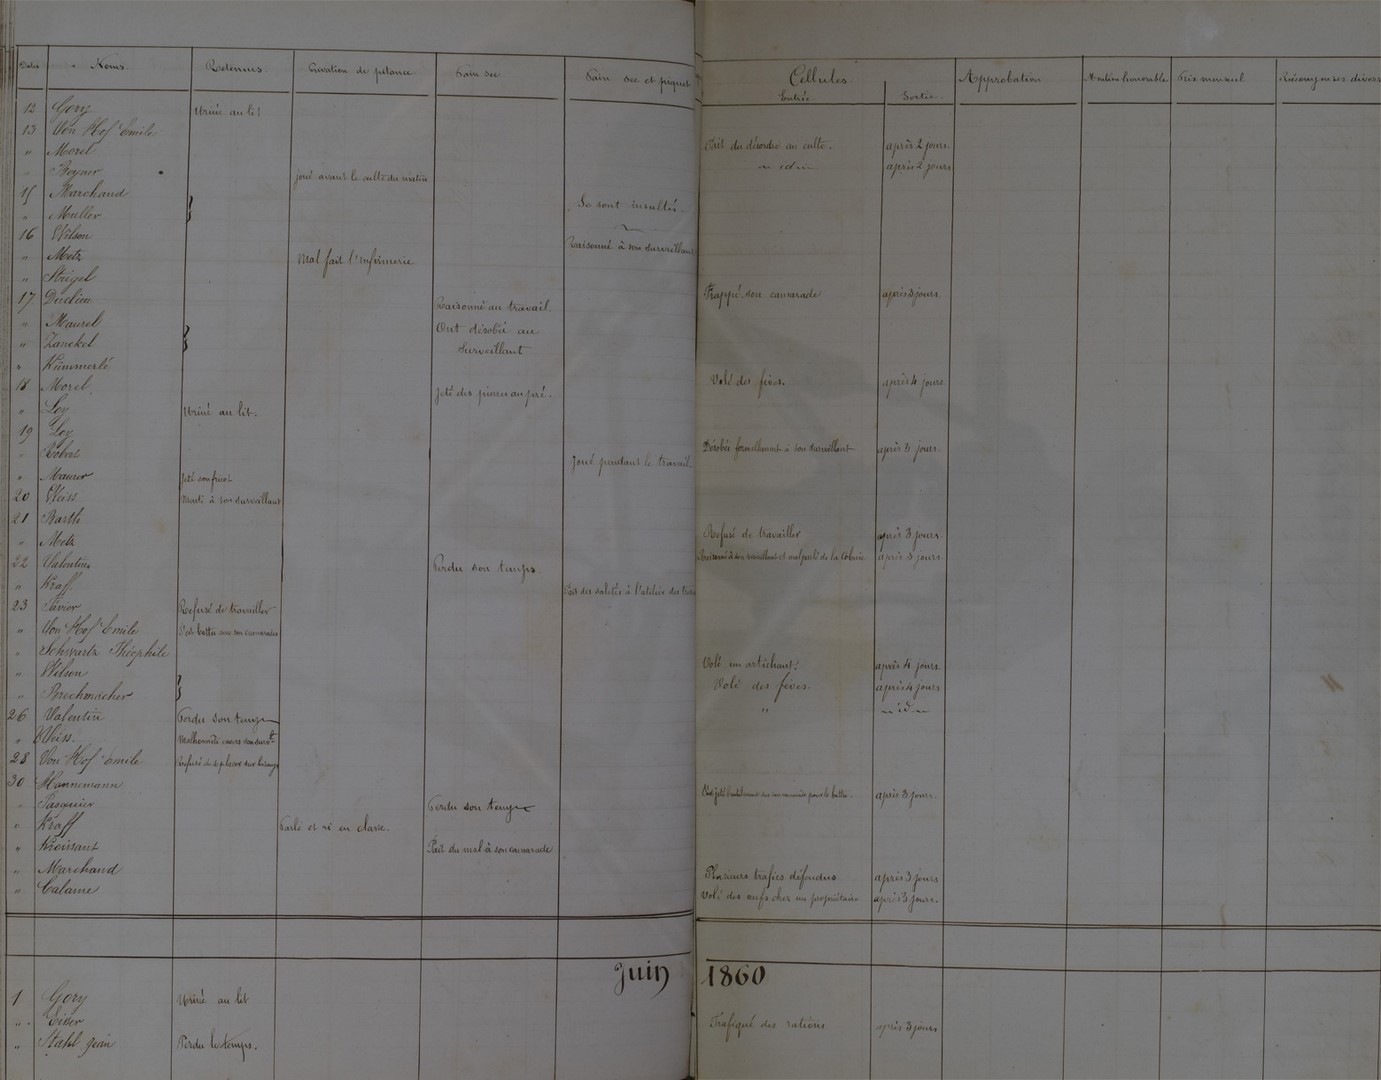 Dates Noms. Retenues Privation de pitance Pain sec Pain sec et piquet Cellules Approbation Mention honorable Prix mensuel Récompenses diverses
Entrée Sortie
12 Gory Uriné au lit
13 Von Hof Emile
" Morel Fait du désordre au culte. après 2 jours.
" Boyner — id — après 2 jours
joué avant le culte du matin
15 Marchand
" Muller Se sont insultés
16 Wilson
" Metz Mal fait l'infirmerie Raisonné à son surveillant
" Stiegel
17 Duclieu Frappé son camarade après 3 jours
Raisonné au travail.
" Maurel Ont désobéi au
" Zanekel surveillant
" Kümmerlé
18 Morel Volé des fèves. après 4 jours
Jeté des pierres au pré.
" Loy Uriné au lit.
19 Loy
" Robert Désobéi formellement à son surveillant après 3 jours
Joué pendant le travail.
" Maurer Jeté son fricot
20 Weiss Menti à son surveillant
21 Barth
" Metz Refusé de travailler après 3 jours.
22 Valentin Raisonné à son surveillant et mal parlé de la Colonie après 3 jours.
Perdu son temps.
" Kraff Fait des saletés à l'atelier des
23 Savior Refusé de travailler
" Von Hof Emile S'est battu avec son camarade
" Schwartz Théophile
" Wilson Volé un artichaut. après 4 jours.
" Brechmacher Volé des fèves. après 4 jours
26 Valentin Perdu son temps " — id —
" Weiss. Malhonnête envers son survt
28 Von Hof Emile Refusé de
30 Hannemann
" Pasquier Perdu son temps après 3 jours.
" Kraff Parlé et ri en classe.
" Kroissant Fait du mal à son camarade
" Marchand Plusieurs trafics défendus après 3 jours
" Calame Volé des œufs chez un propriétaire après 3 jours.
Juin 1860
1 Gory Uriné au lit
" Eider Trafiqué des rations après 3 jours
" Stahl Jean Perdu le temps.